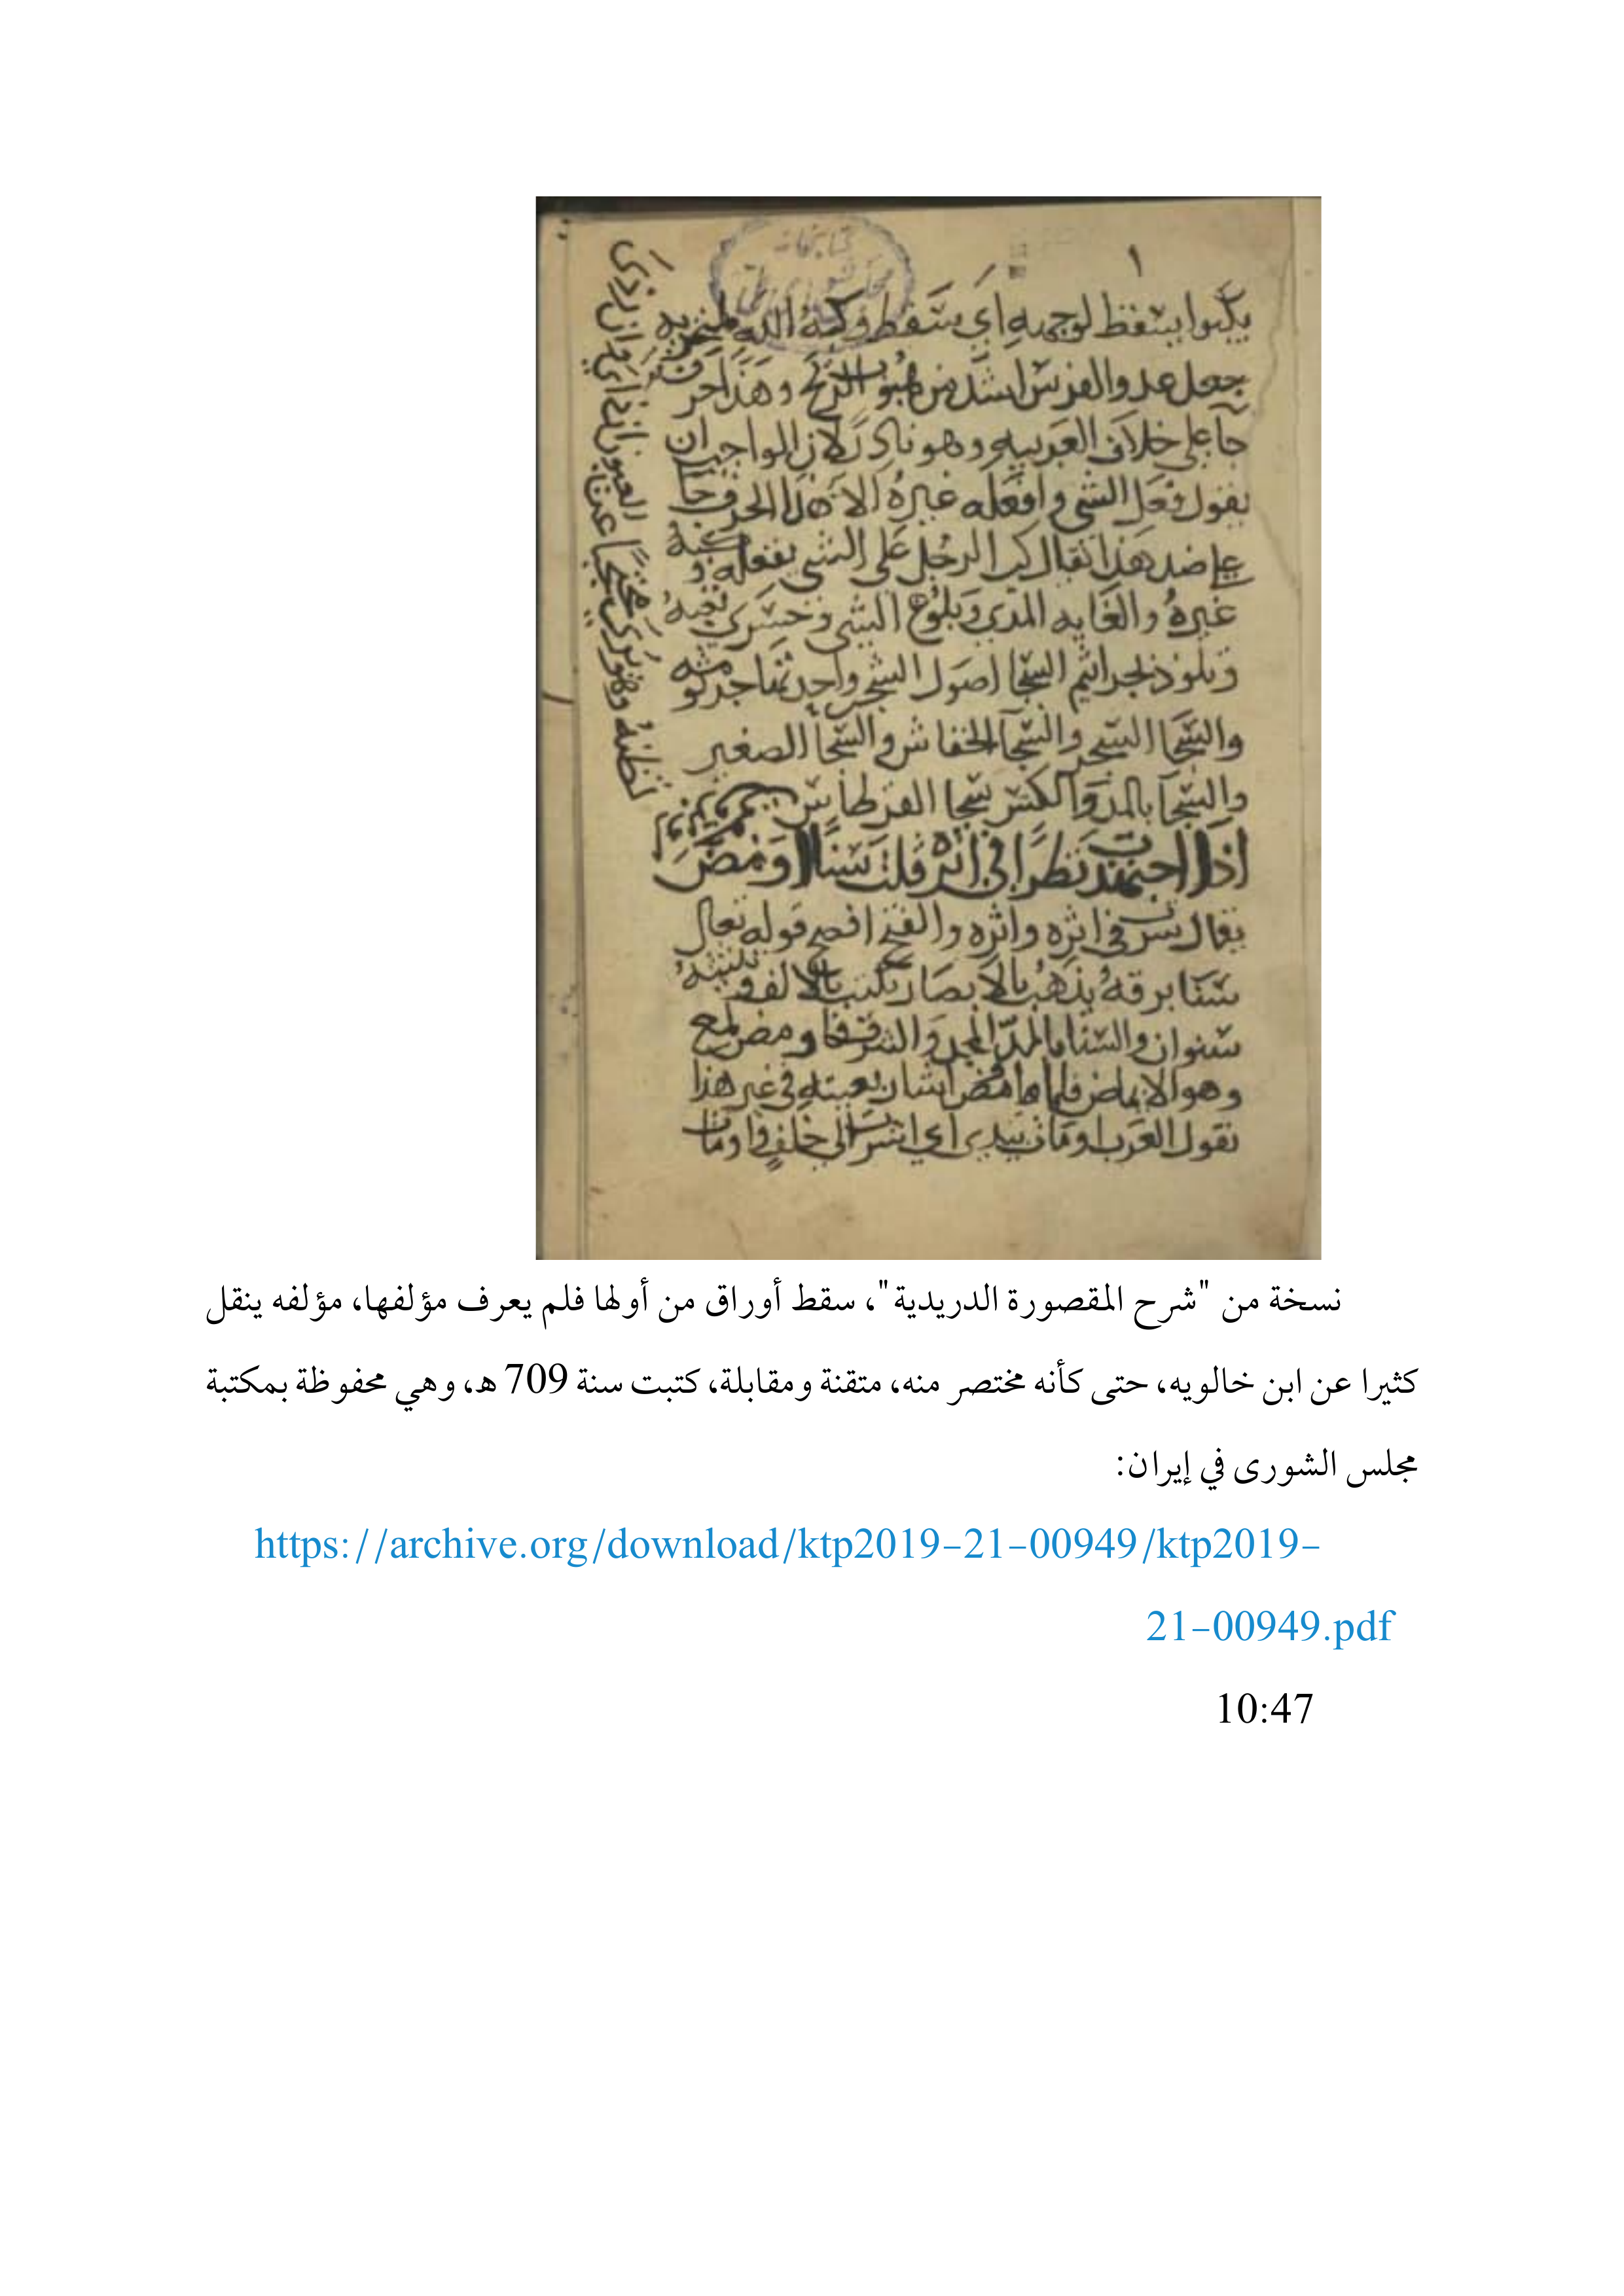 ١
يكبوا يسقط لوجهه اي سقط وكبه الله لمنخريه
جعل عدو الفرس اشد من هبوب الريح وهذا حرف
جا على خلاف العربيه وهو نادر لان الواجب ان
يقول فعل الشي وافعله غيره الا هذا الحرف جا
على ضد هذا يقال اكب الرجل على الشي يفعله وكبه
غيره والغايه المدي وبلوغ الشي
اصول الشجر واحدتها جرثومه
والسحا الخفاش والسحا الصغير
والسحا بالمد والكسر سحا القرطاس
اذا اجتهدت نظرا في اثره قلت سنا اومض
يقال سرت في اثره واثره والفتح افصح قوله تعالى
سنا برقه يذهب بالابصار يكتب بالالف وتثنيته
سنوان والسنا بالمد المجد والشرف فاومض لمع
وهو الايماض فاما اشار بعينه في غير هذا
تقول العرب اي اشرت الى خلف
نسخة من "شرح المقصورة الدريدية"، سقط أوراق من أولها فلم يعرف مؤلفها، مؤلفه ينقل
كثيرا عن ابن خالويه، حتى كأنه مختصر منه، متقنة ومقابلة، كتبت سنة 709 هـ، وهي محفوظة بمكتبة
مجلس الشورى في إيران:
https://archive.org/download/ktp2019-21-00949/ktp2019-
21-00949.pdf
10:47